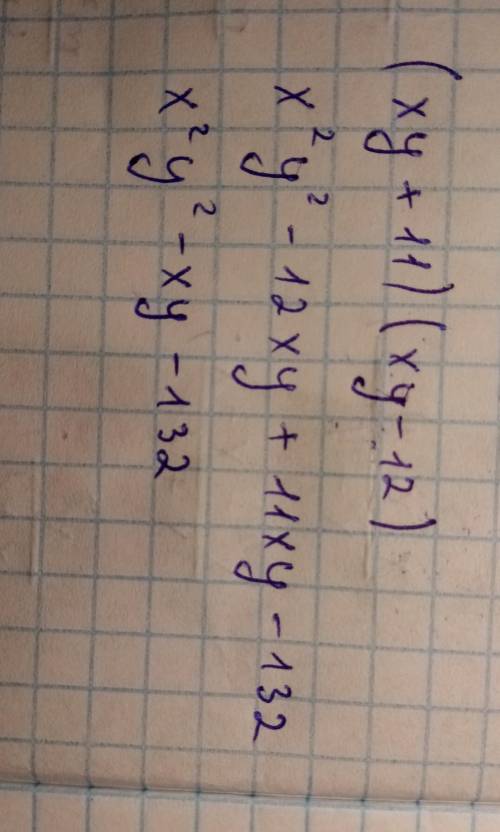 (xy + 11) (xy - 12)
x² y² - 12 xy + 11xy - 132
x² y² - xy - 132